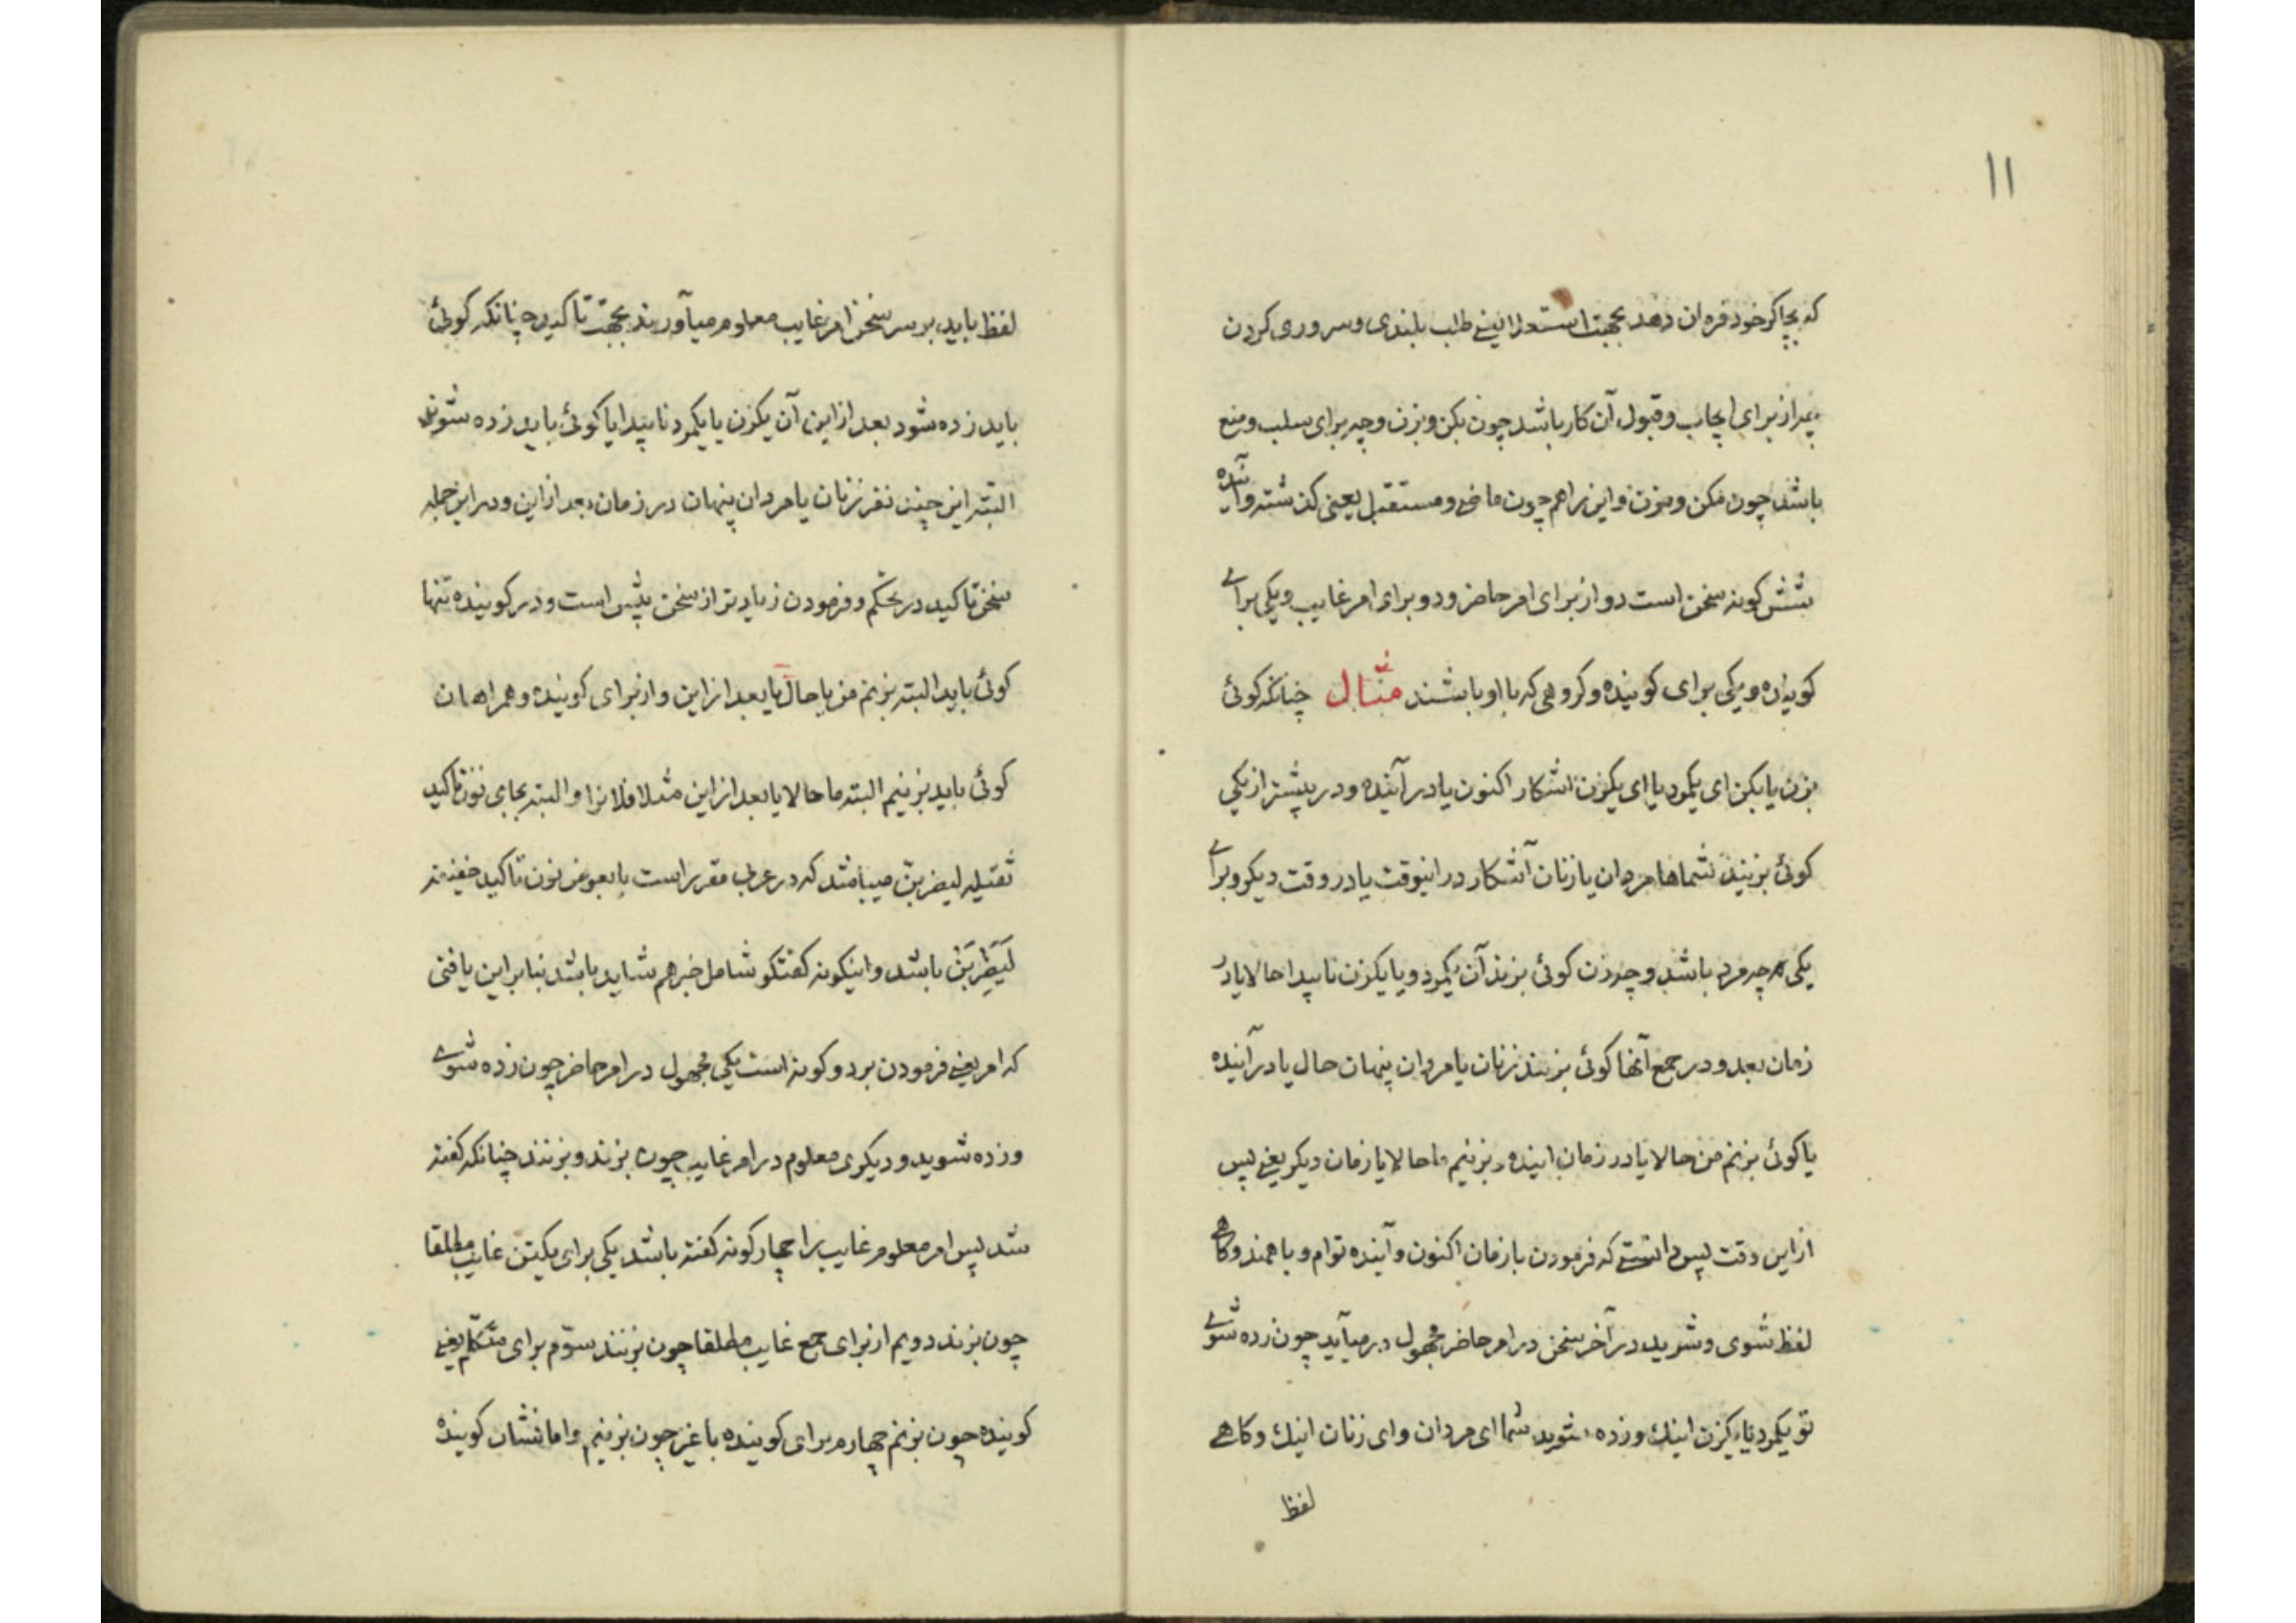 ۱۱
که بچاکر خود فرمان دهد بجهت استعلا یعنے طلب بلندی و سروری کردن
چه از برای ایجاب و قبول آن کار باشد چون بکن و بزن و چه برای سلب و منع
باشد چون مکن و مزن و این را هم چون ماضے و مستقبل یعنی کذشته و آینده
شش کونه سخن است دو از برای امر حاضر و دو برای امر غایب و یکی براے
کوینده و یکی برای کوینده و کروهی که با او باشند مثال چنانکه کوئی
بزن یا بکن ای یکمرد یا ای یکزن اشکار اکنون یا در آینده و در بیشتر از یکی
کوئی بزنید شماها مردان یا زنان آشکار در اینوقت یا در وقت دیکر و براے
یکی هر چه مرد باشد و چه زن کوئی بزند آن یکمرد و یا یکزن ناپیدا حالا یا در
زمان بعد و در جمع آنها کوئی بزنند زنان یا مردان پنهان حال یا در آینده
یا کوئی بزنم من حالا یا در زمان اینده و بزنیم ما حالا یا زمان دیکر یعنے پس
از این وقت پس دانستے که فرمودن با زمان اکنون و آینده توام و با همند و کاهے
لفظ شوی و شوید در آخر سخن در امر حاضر مجهول در میآید چون زده شوے
تو یکمرد یا یکزن اینك و زده شوید شما ای مردان و ای زنان اینك و کاهے
لفظ
لفظ باید بر سر سخن امر غایب معلوم میآورند بجهت تاکید چنانکه کوئی
باید زده شود بعد از این آن یکزن یا یکمرد ناپیدا یا کوئی باید زده شوند
البته این چنین نفر زنان یا مردان پنهان در زمان بعد از این و در این جمله
سخن تاکید در حکم و فرمودن زیادتر از سخن پیش است و در کوینده تنها
کوئی باید البته بزنم من یا حال یا بعد از این و از برای کوینده و همراهان
کوئی باید بزنیم البته ما حالا یا بعد از این مثلا فلانرا و البته بجای نون تاکید
ثقیله لیضربن میباشد که در عرب مقرر است یا بعوض نون تاکید خفیفه
لَیَضْرِبَنْ باشد و اینکونه کفتکو شامل خبر هم شاید باشد بنابراین یافتی
که امر یعنے فرمودن بر دو کونه است یکی مجهول در امر حاضر چون زده شوے
و زده شوید و دیکری معلوم در امر غایب چون بزند و بزنند چنانکه کفته
شد پس امر معلوم غایب را چهار کونه کفته باشد یکی برای یکتن غایب مطلقا
چون بزند دویم از برای جمع غایب مطلقا چون بزنند سوّم برای متکلم یعنے
کوینده چون بزنم چهارم برای کوینده با غیر چون بزنیم و اما نشان کوینده